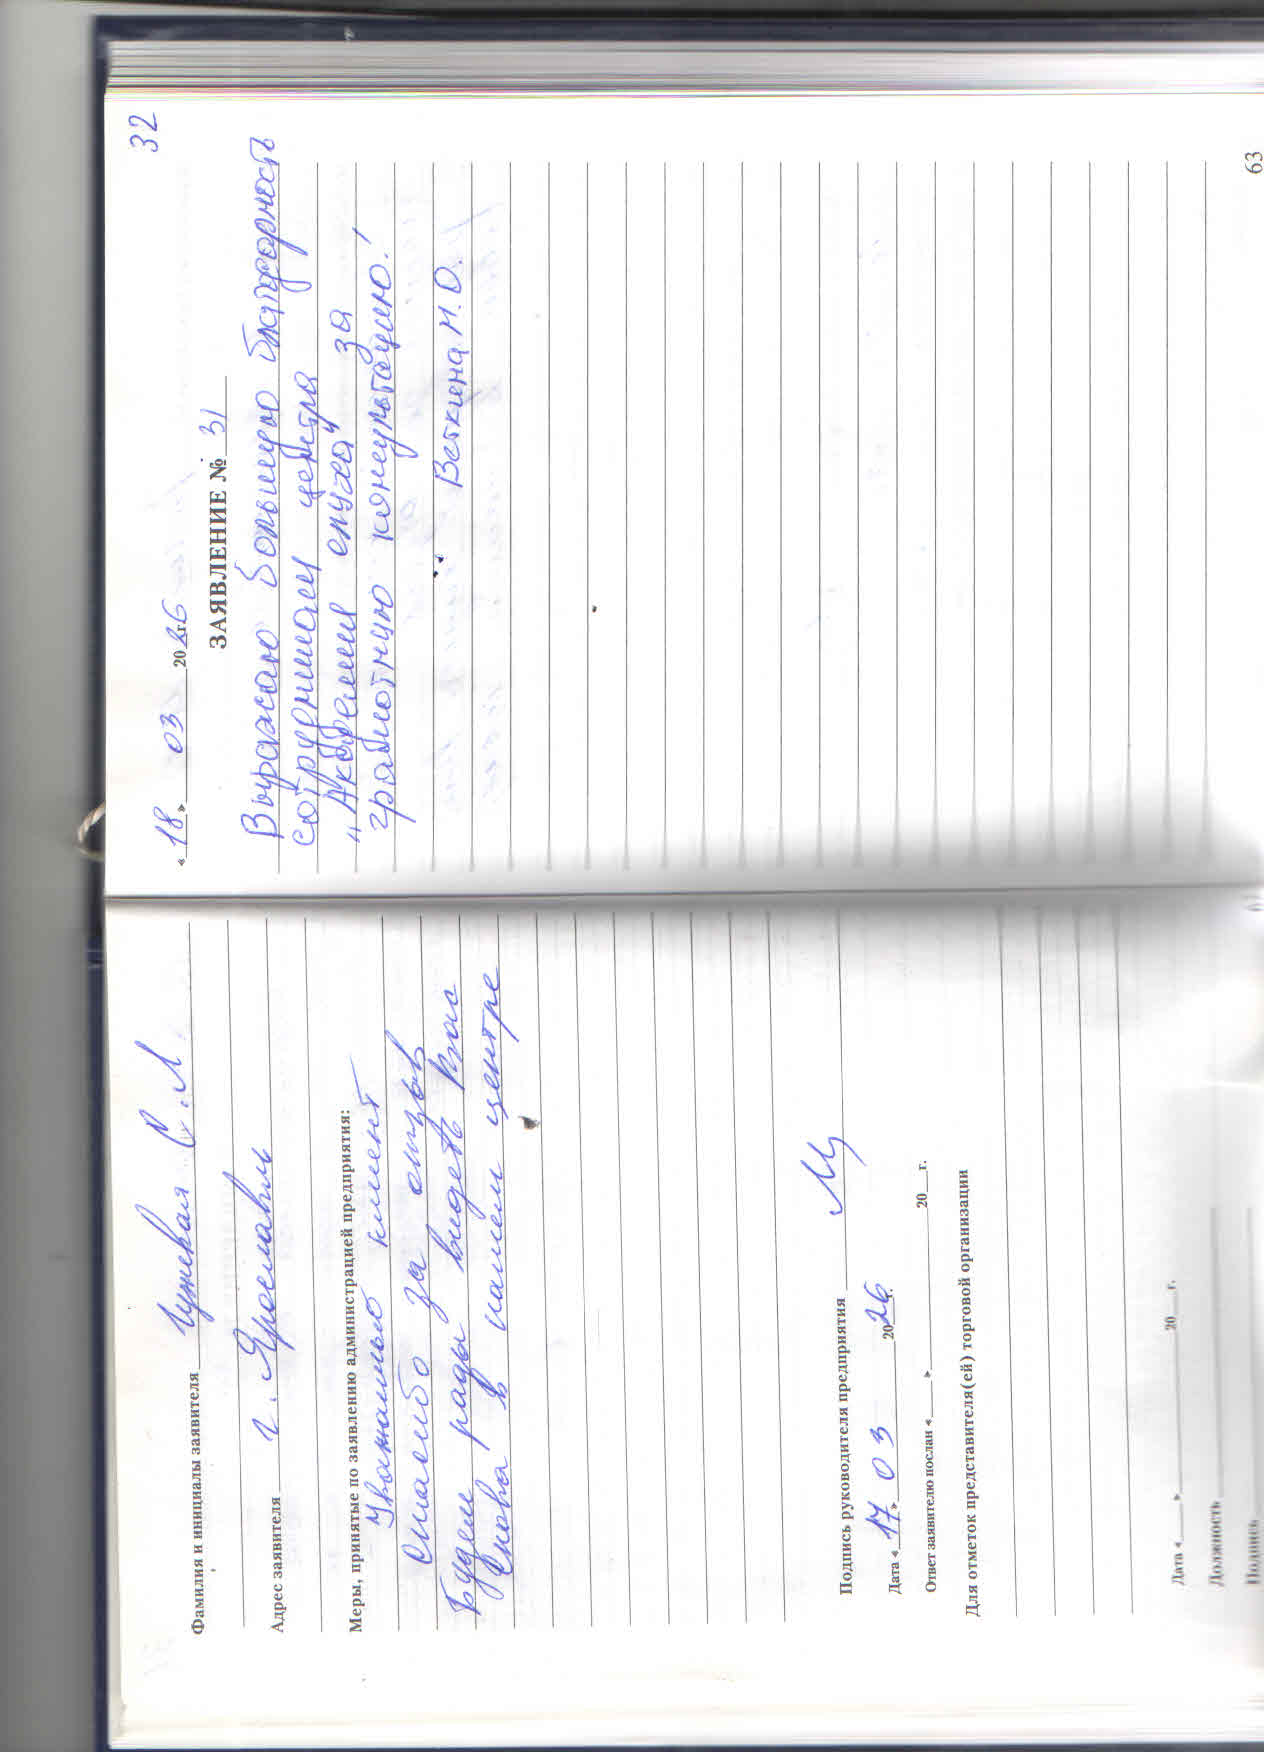 Фамилия и инициалы заявителя Чужевая С.Л.
Адрес заявителя г. Ярославль
Меры, принятые по заявлению администрацией предприятия:
Уважаемый клиент
Спасибо за отзыв
Будем рады видеть Вас
снова в нашем центре
Подпись руководителя предприятия
Дата « 17 » 03 2026 г.
Ответ заявителю послан «___» ___ 20__ г.
Для отметок представителя(ей) торговой организации
Дата «___» ___ 20__ г.
Должность
Подпись
32
« 18 » 03 2026 г.
ЗАЯВЛЕНИЕ № 31
Выражаю большую благодарность
сотрудникам центра
"Академия слуха" за
грамотную консультацию!
Веткина Н.О.
63